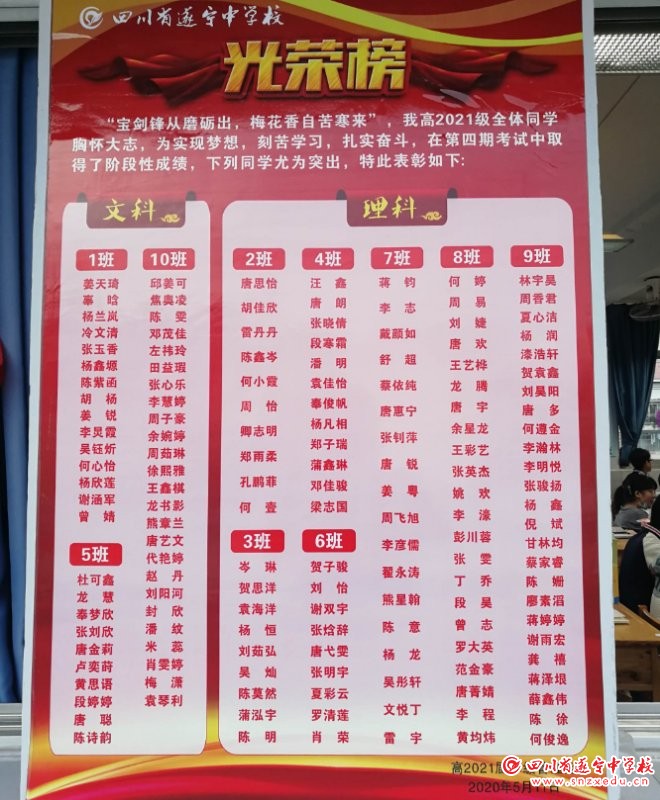 四川省遂宁中学校
光荣榜
“宝剑锋从磨砺出，梅花香自苦寒来”，我高2021级全体同学
胸怀大志，为实现梦想，刻苦学习，扎实奋斗，在第四期考试中取
得了阶段性成绩，下列同学尤为突出，特此表彰如下：
文科
1班
姜天琦
辜晗
杨兰岚
冷文清
张玉香
杨鑫塬
陈紫函
胡杨
姜锐
李炅霞
吴钰炘
何心怡
杨欣莲
谢涵军
曾婧
5班
杜可鑫
龙慧
奉梦欣
张刘欣
唐金莉
卢奕莳
黄思语
段婷婷
唐聪
陈诗韵
10班
邱姜可
焦奥凌
陈雯
邓茂佳
左祎玲
田益瑕
张心乐
李慧婷
周子豪
余婉婷
周茹琳
徐熙雅
王鑫棋
龙书影
熊章兰
唐艺文
代艳婷
赵丹
刘阳河
封欣
潘纹
米蕊
肖雯婷
梅潇
袁琴利
理科
2班
唐思怡
胡佳欣
雷丹丹
陈鑫岑
何小霞
周怡
卿志明
郑雨柔
孔鹏菲
何壹
3班
岑琳
贺思洋
袁海洋
杨恒
刘茹弘
吴灿
陈莫然
蒲泓宇
陈明
4班
汪鑫
唐朗
张晓倩
段寒霜
潘明
袁佳怡
奉俊帆
杨凡相
郑子瑞
蒲鑫琳
邓佳骏
梁志国
6班
贺子骏
刘怡
谢双宇
张焓辞
唐弋雯
张明宇
夏彩云
罗清莲
肖荣
7班
蒋钧
李志
戴颜如
舒超
蔡依纯
唐惠宁
张钊萍
唐锐
姜粤
周飞旭
李彦儒
翟永涛
熊星翰
陈意
杨龙
吴彤轩
文悦丁
雷宇
8班
何婷
周易
刘婕
唐欢
王艺桦
龙腾
唐宇
余星龙
王彩艺
张英杰
姚欢
李濠
彭川蓉
张雯
丁乔
段吴
曾志
罗大英
范金豪
唐菁婧
李程
黄均炜
9班
林宇昊
周香君
夏心洁
杨润
漆浩轩
贺袁鑫
刘昊阳
唐多
何遵金
李瀚林
李明悦
张骏扬
杨鑫
倪斌
甘林均
蔡家睿
陈姗
廖素滔
蒋婷婷
谢雨宏
龚禧
蒋泽垠
薛鑫伟
陈徐
何俊逸
高2021
2020年5月11日
四川省遂宁中学校
www.snzxedu.cn